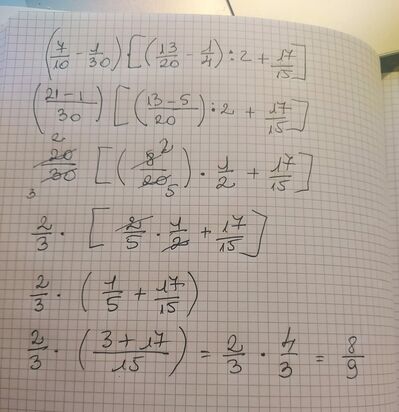 (7/10 - 1/30) · [(13/20 - 1/4) : 2 + 17/15]
((21-1)/30) [((13-5)/20) : 2 + 17/15]
2 20/30 3 [(8/20 2 5) · 1/2 + 17/15]
2/3 · [2/5 · 1/2 + 17/15]
2/3 · (1/5 + 17/15)
2/3 · ((3+17)/15) = 2/3 · 4/3 = 8/9